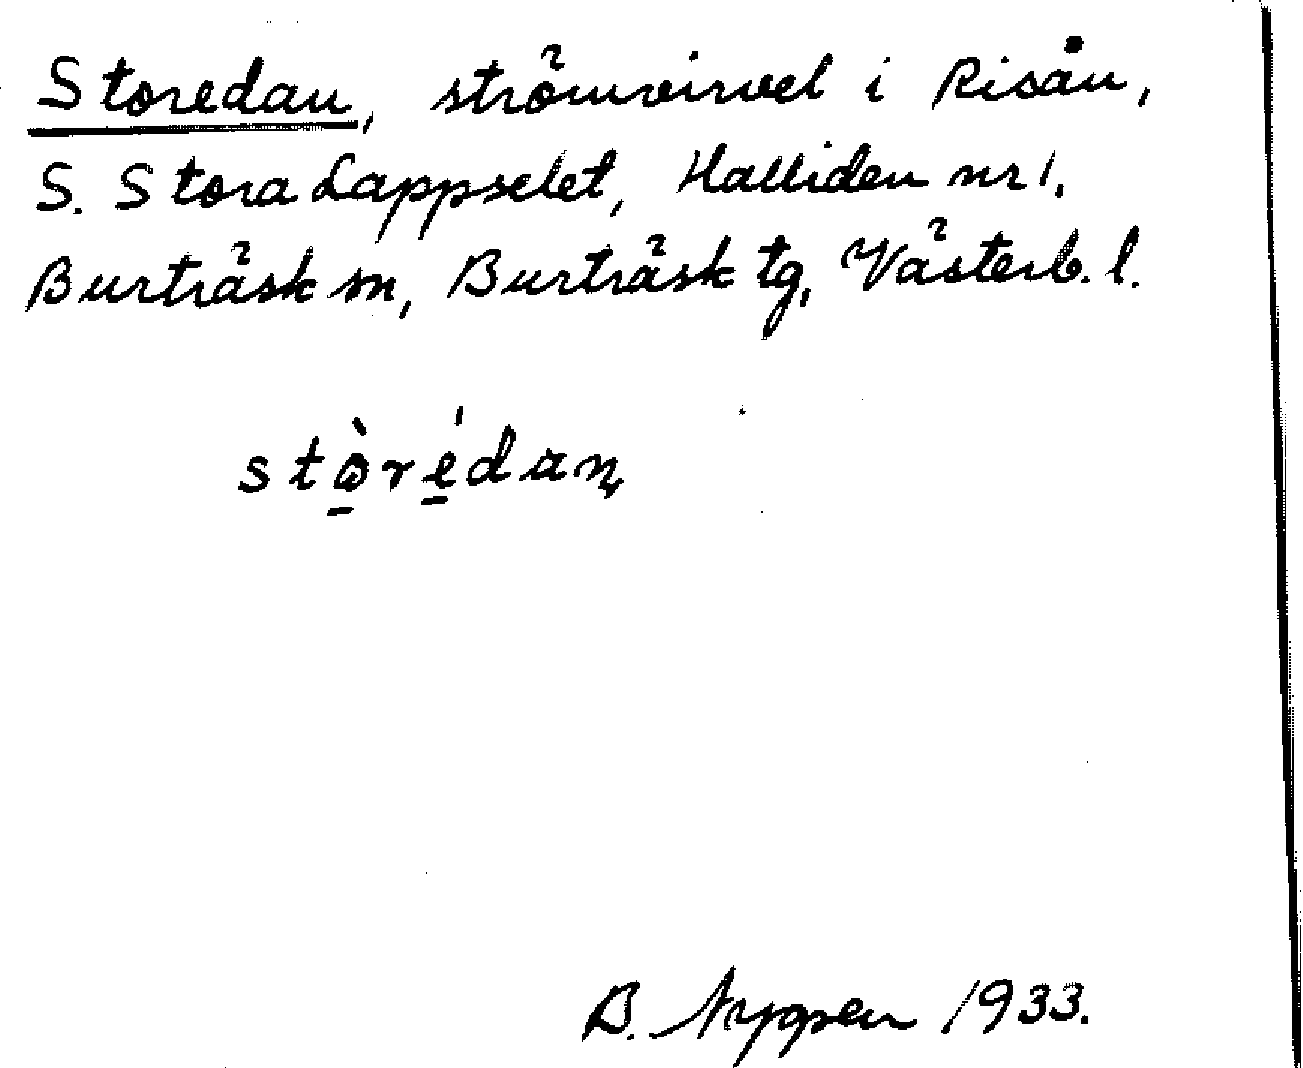 Storedan, strömvirvel i Risån,
S. Stora Lappselet, Halliden nr 1.
Burträsk sn, Burträsk tg, Västerb. l.
stòrédan
B. Nygren 1933.